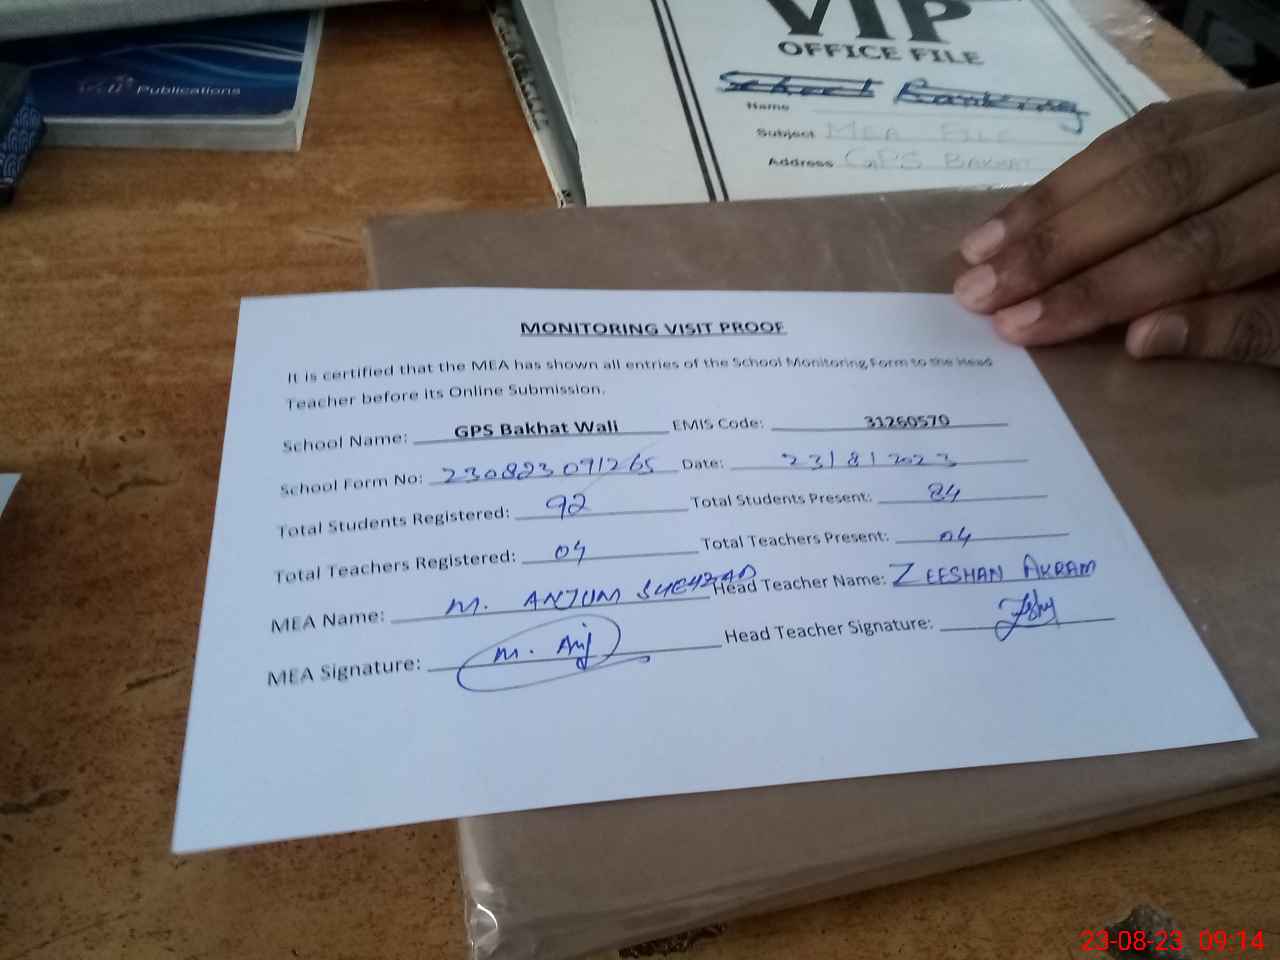 Publications
VIP
OFFICE FILE
School Ranking
Name
Subject MEA FILE
Address GPS BAKHAT
MONITORING VISIT PROOF
It is certified that the MEA has shown all entries of the School Monitoring Form to the Head
Teacher before its Online Submission.
School Name: GPS Bakhat Wali EMIS Code: 31260570
School Form No: 230823091265 Date: 23/8/2023
Total Students Registered: 92 Total Students Present: 84
Total Teachers Registered: 04 Total Teachers Present: 04
MEA Name: M. ANJUM SHEHZAD Head Teacher Name: ZEESHAN AKRAM
MEA Signature: M. Anj Head Teacher Signature:
23-08-23 09:14